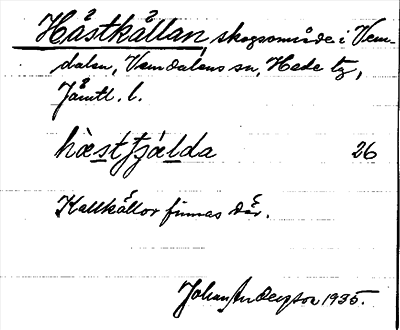 Håstkållan, skogsområde i Vem-
dalen, Vemdalens sn, Hede tg,
Jämtl. l.
hæstfjælda 26
Kallkållor finnas där.
Johan Anderson 1935.